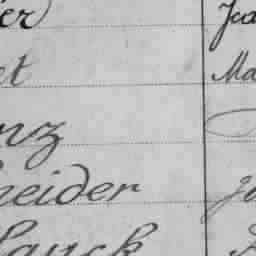 er Ja
et Ma
nz
neider Jo
lauck